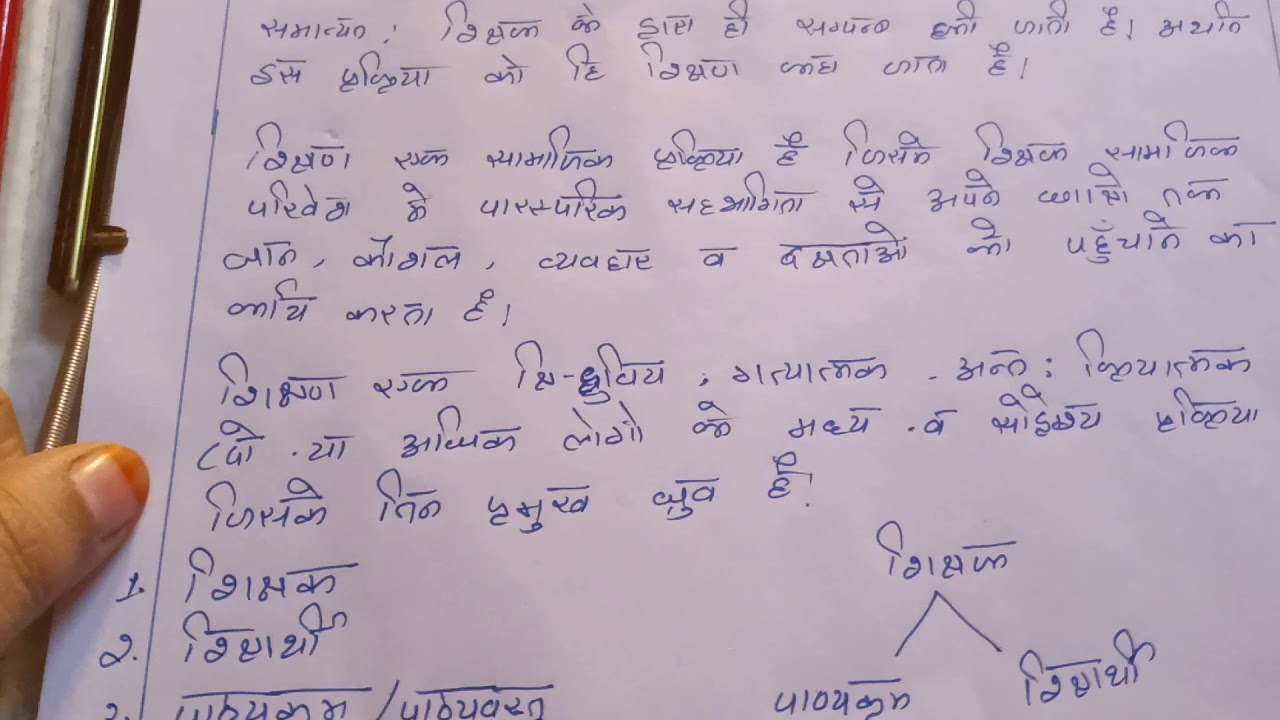 समान्यत: शिक्षक के द्वारा ही सम्पन्न की जाती है। अर्थात
इस प्रक्रिया को हि शिक्षण कहा जाता है।
शिक्षण एक सामाजिक प्रक्रिया है जिसमे शिक्षक सामाजिक
परिवेश के पारस्परिक सहभागिता से अपने छात्रो तक
ज्ञान, कौशल, व्यवहार व दक्षताओ को पहुँचाने का
कार्य करता है।
शिक्षण एक त्रि-ध्रुविय, गत्यात्मक, अन्त: क्रियात्मक
(दो या अधिक लोगो के मध्य व सोद्देश्य प्रक्रिया
जिसके तिन प्रमुख ध्रुव है।
1. शिक्षक
2. शिक्षार्थी
3. पाठ्यक्रम / पाठ्यवस्तु
शिक्षक
पाठ्यक्रम शिक्षार्थी